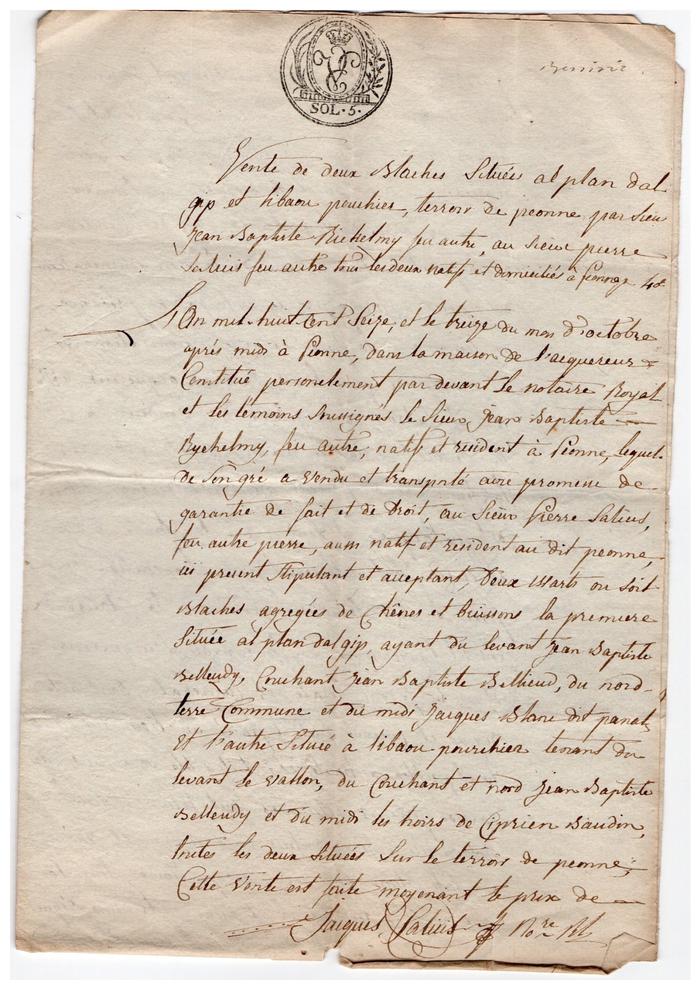 SOL. 5.
Vente de deux Blaches Situées al plan dal
gip et libaou pouchier, terroir de peonne par Sieur
Jean Baptiste Richelmy feu autre, au Sieur pierre
Salicis feu autre tous les deux natifs et domiciliés à peonne
L'An mil huit Cent Seize, et le treize du mois d'octobre
après midi à Peonne, dans la maison de l'acquereur
Constitué personelement par devant le notaire Royal
et les temoins Soussignés le Sieur Jean Baptiste
Rychelmy feu autre, natif et resident à Peonne, lequel
de Son gré a vendu et transporté avec promesse de
garantie de fait et de Droit, au Sieur Pierre Salicis,
feu autre pierre, aussi natif et resident au dit peonne,
ici present Stipulant et acceptant, Deux ou Soit
Blaches agregiées de Chênes et buissons la premiere
Située al plan dal gip, ayant du levant Jean Baptiste
Belleudy, Couchant Jean Baptiste Bellieud, du nord
terre Commune et du midi Jacques Blanc dit
Et l'autre Située à libaou pourchier tenant du
levant le vallon, du Couchant et nord Jean Baptiste
Belleudy et du midi les hoirs de Ciprien Baudin,
toutes les deux Situées Sur le terroir de peonne;
Cette Vente est faite moyenant le prix de
Jacques Salicis Nore Rl